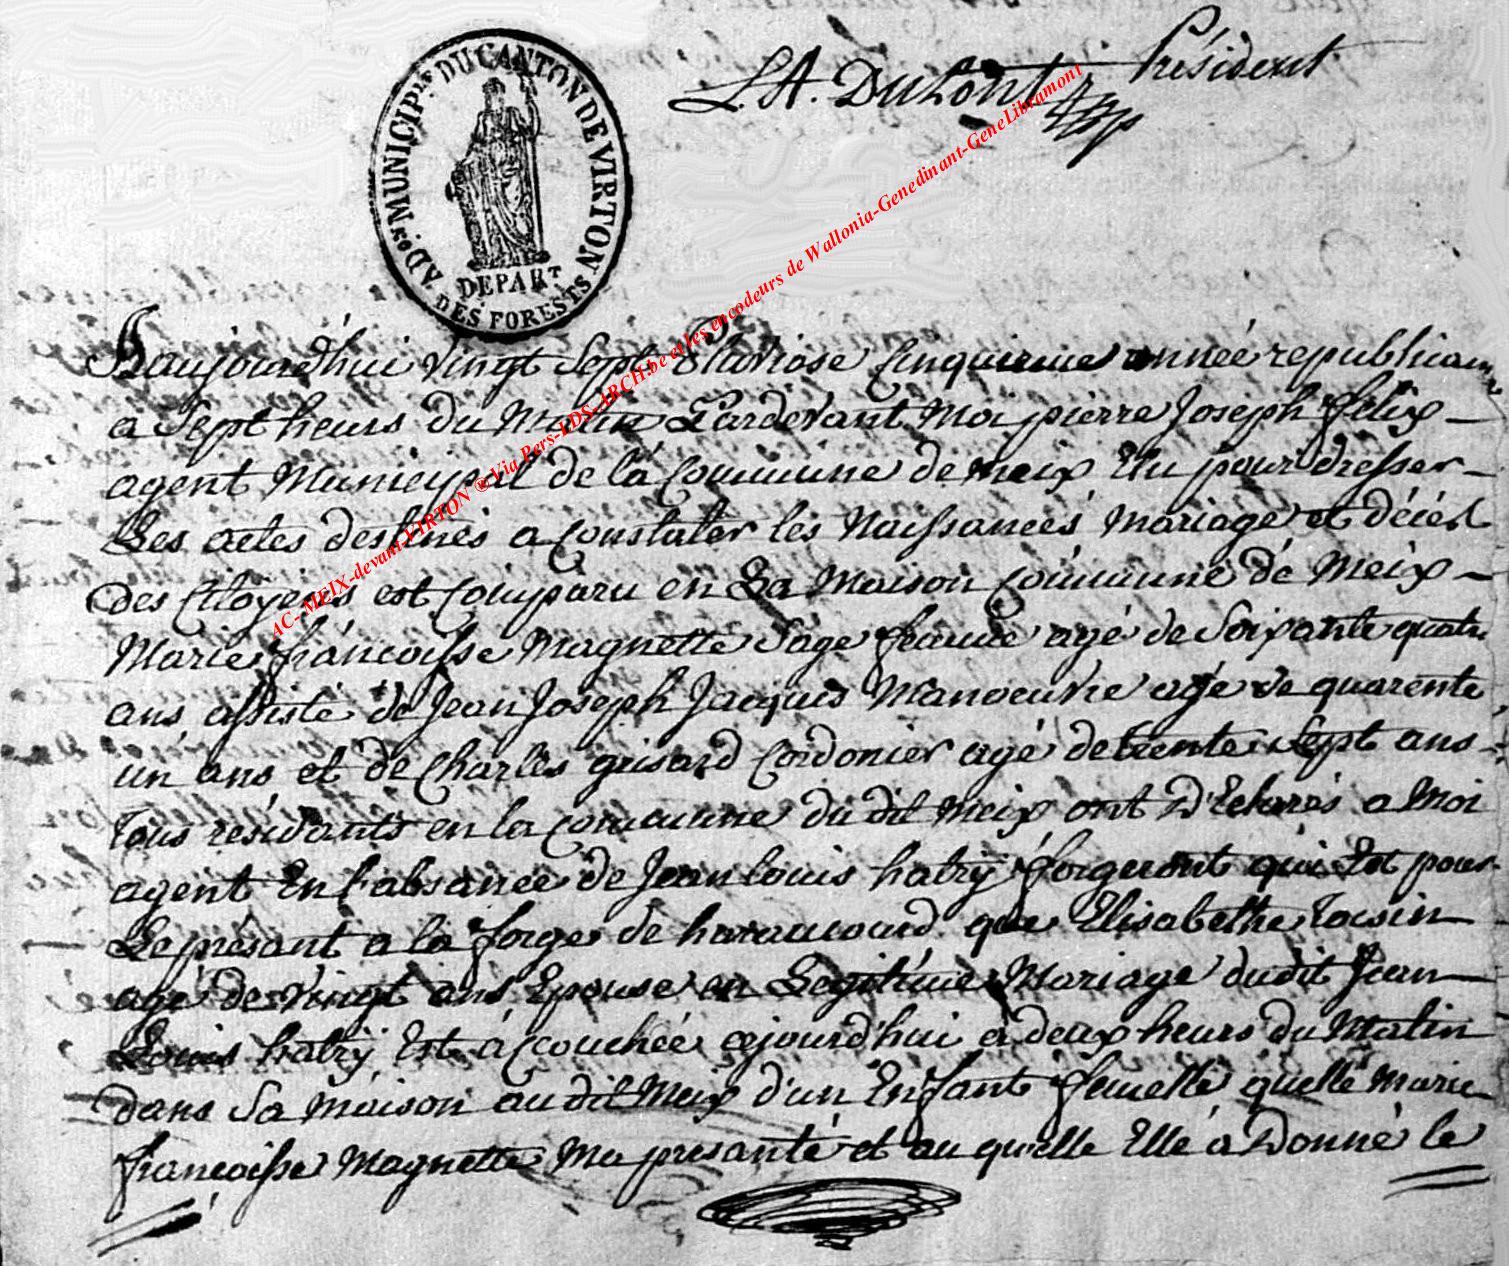 L.A. DuLont Président
ADon. MUNICIPle. DU CANTON DE VIRTON
DEPART.
DES FORESTS
AC- MEIX-devant-VIRTON ® Via Pers-EDS-ARCH.be et les encodeurs de Wallonia-Genedinant-GeneLibramont
aujourd'hui vingt Sept Pluviose Cinquieme année republicaine
a Sept heurs du Matin Pardevant Moi pierre Joseph felix
agent Municipal de la Commune de meix Elu pour dresser
Les actes destinés a Constater les Naissances mariage et décés
des Citoyens est Comparu en La Maison Commune de Meix
Marie françoisse Magnette Sage femme agé de Soixante quatre
ans assisté de Jean Joseph Jacques Manoeuvre agé de quarente
un ans et de Charles grisard Cordonier agé de trente Sept ans
Tous residants en la Commune du dit Meix ont D'Eclarés a Moi
agent En l'absance de Jean louis hatrÿ forgeront qui Est pour
Le presant a la forge de haraucourd que Elisabethe Tocsin
agé de vingt ans Epouse en Legitime Mariage dudit Jean
Louis hatrÿ Est accouchée cejourd'hui a deux heurs du Matin
dans Sa maison au dit Meix d'un Enfant femelle quelle Marie
françoisse Magnette Ma presanté et au quelle Elle a Donné le